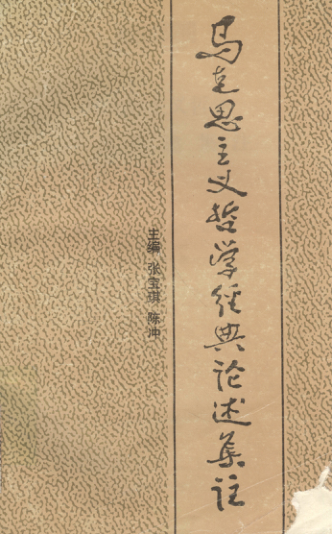 马克思主义哲学经典论述集注
主编 张宝琪 陈冲